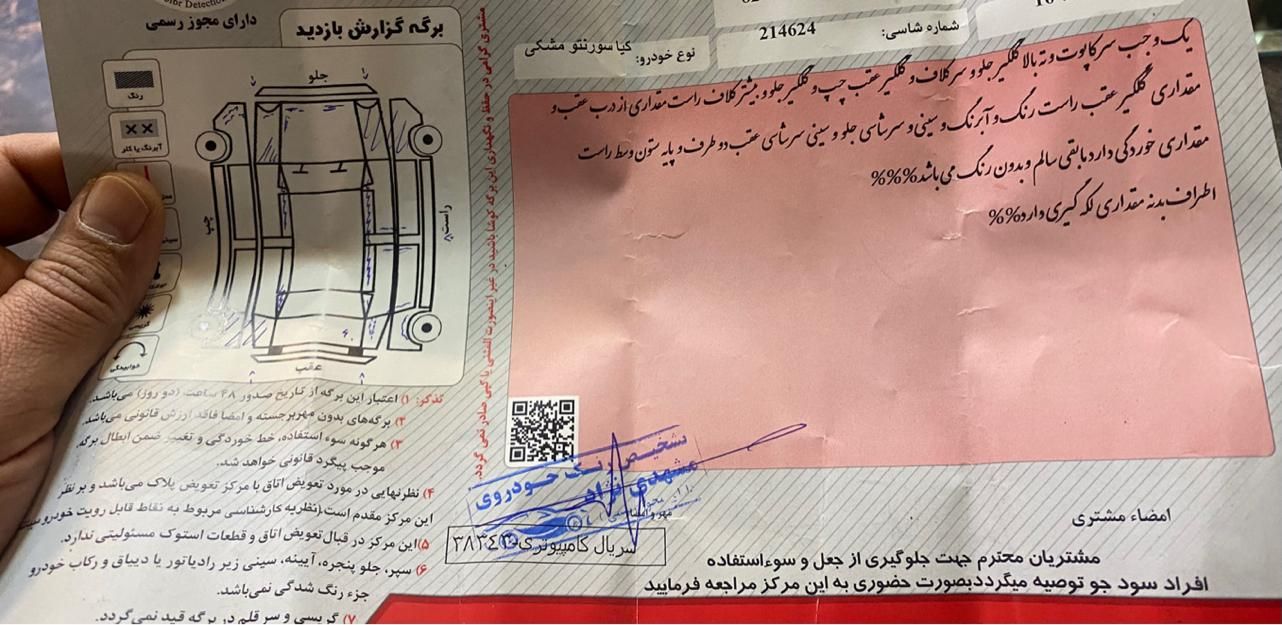 دارای مجوز رسمی
برگه گزارش بازدید
نوع خودرو: کیا سورنتو مشکی
شماره شاسی: 214624
یک وجب سر کاپوت و ته بالا گلگیر جلو و سر کلاف و گلگیر عقب چپ و گلگیر جلو و بیشتر کلاف راست مقداری از درب عقب و
مقداری گلگیر عقب راست رنگ و آبرنگ و سینی و سرشاسی جلو و سینی سرشاسی عقب دو طرف و پایه ستون وسط راست
مقداری خوردگی دارد مابقی سالم و بدون رنگ می باشد%%%
اطراف بدنه مقداری لکه گیری دارد%%
رنگ
آبرنگ یا کلر
خوابیدگی
جلو
چپ
راست
عقب
مشتری گرامی در حفظ و نگهداری این برگه کوشا باشید در غیر اینصورت المثنی یا کپی صادر نمی گردد.
تذکر: ۱) اعتبار این برگه از تاریخ صدور ۴۸ ساعت (دو روز) می‌باشد.
۲) برگه‌های بدون مهر برجسته و امضا فاقد ارزش قانونی می‌باشد.
۳) هرگونه سوء استفاده، خط خوردگی و تغییر ضمن ابطال برگه،
موجب پیگرد قانونی خواهد شد.
۴) نظر نهایی در مورد تعویض اتاق با مرکز تعویض پلاک می‌باشد و بر نظر
این مرکز مقدم است (نظریه کارشناسی مربوط به نقاط قابل رویت خودرو
۵) این مرکز در قبال تعویض اتاق و قطعات استوک مسئولیتی ندارد.
۶) سپر، جلو پنجره، آیینه، سینی زیر رادیاتور یا دیباق و رکاب خودرو
جزء رنگ شدگی نمی‌باشد.
۷) گریسی و سر قلم در برگه قید نمی‌گردد.
تشخیص رنگ خودروی
مشهدی نژاد
سریال کامپیوتری
امضاء مشتری
مشتریان محترم جهت جلوگیری از جعل و سوءاستفاده
افراد سود جو توصیه میگردد بصورت حضوری به این مرکز مراجعه فرمایید